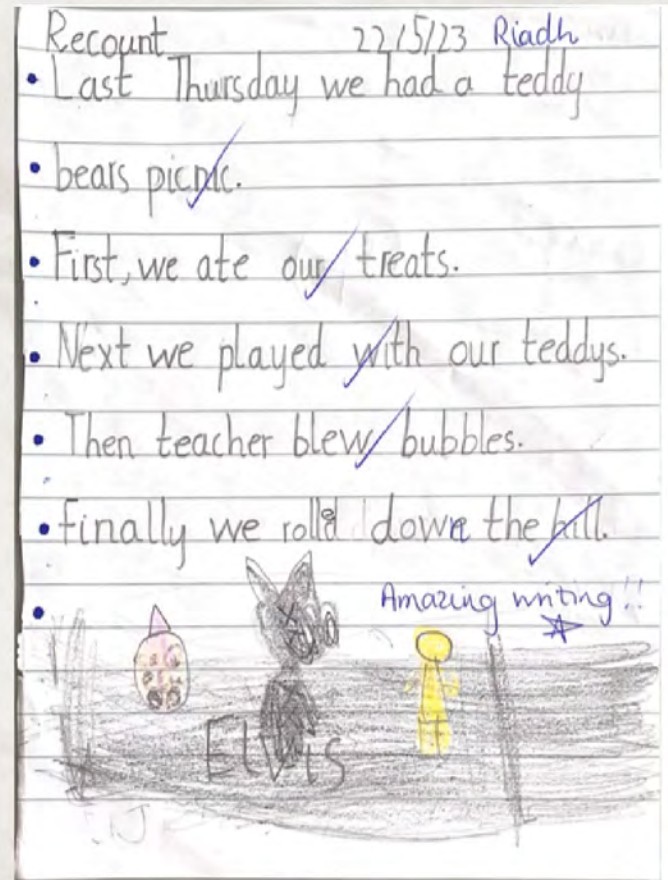 Recount 22/5/23 Riadh
• Last Thursday we had a teddy
• bears picnic.
• First, we ate our treats.
• Next we played with our teddys.
• Then teacher blew bubbles.
• Finally we rolld down the hill.
Amazing writing !!
ELVIS